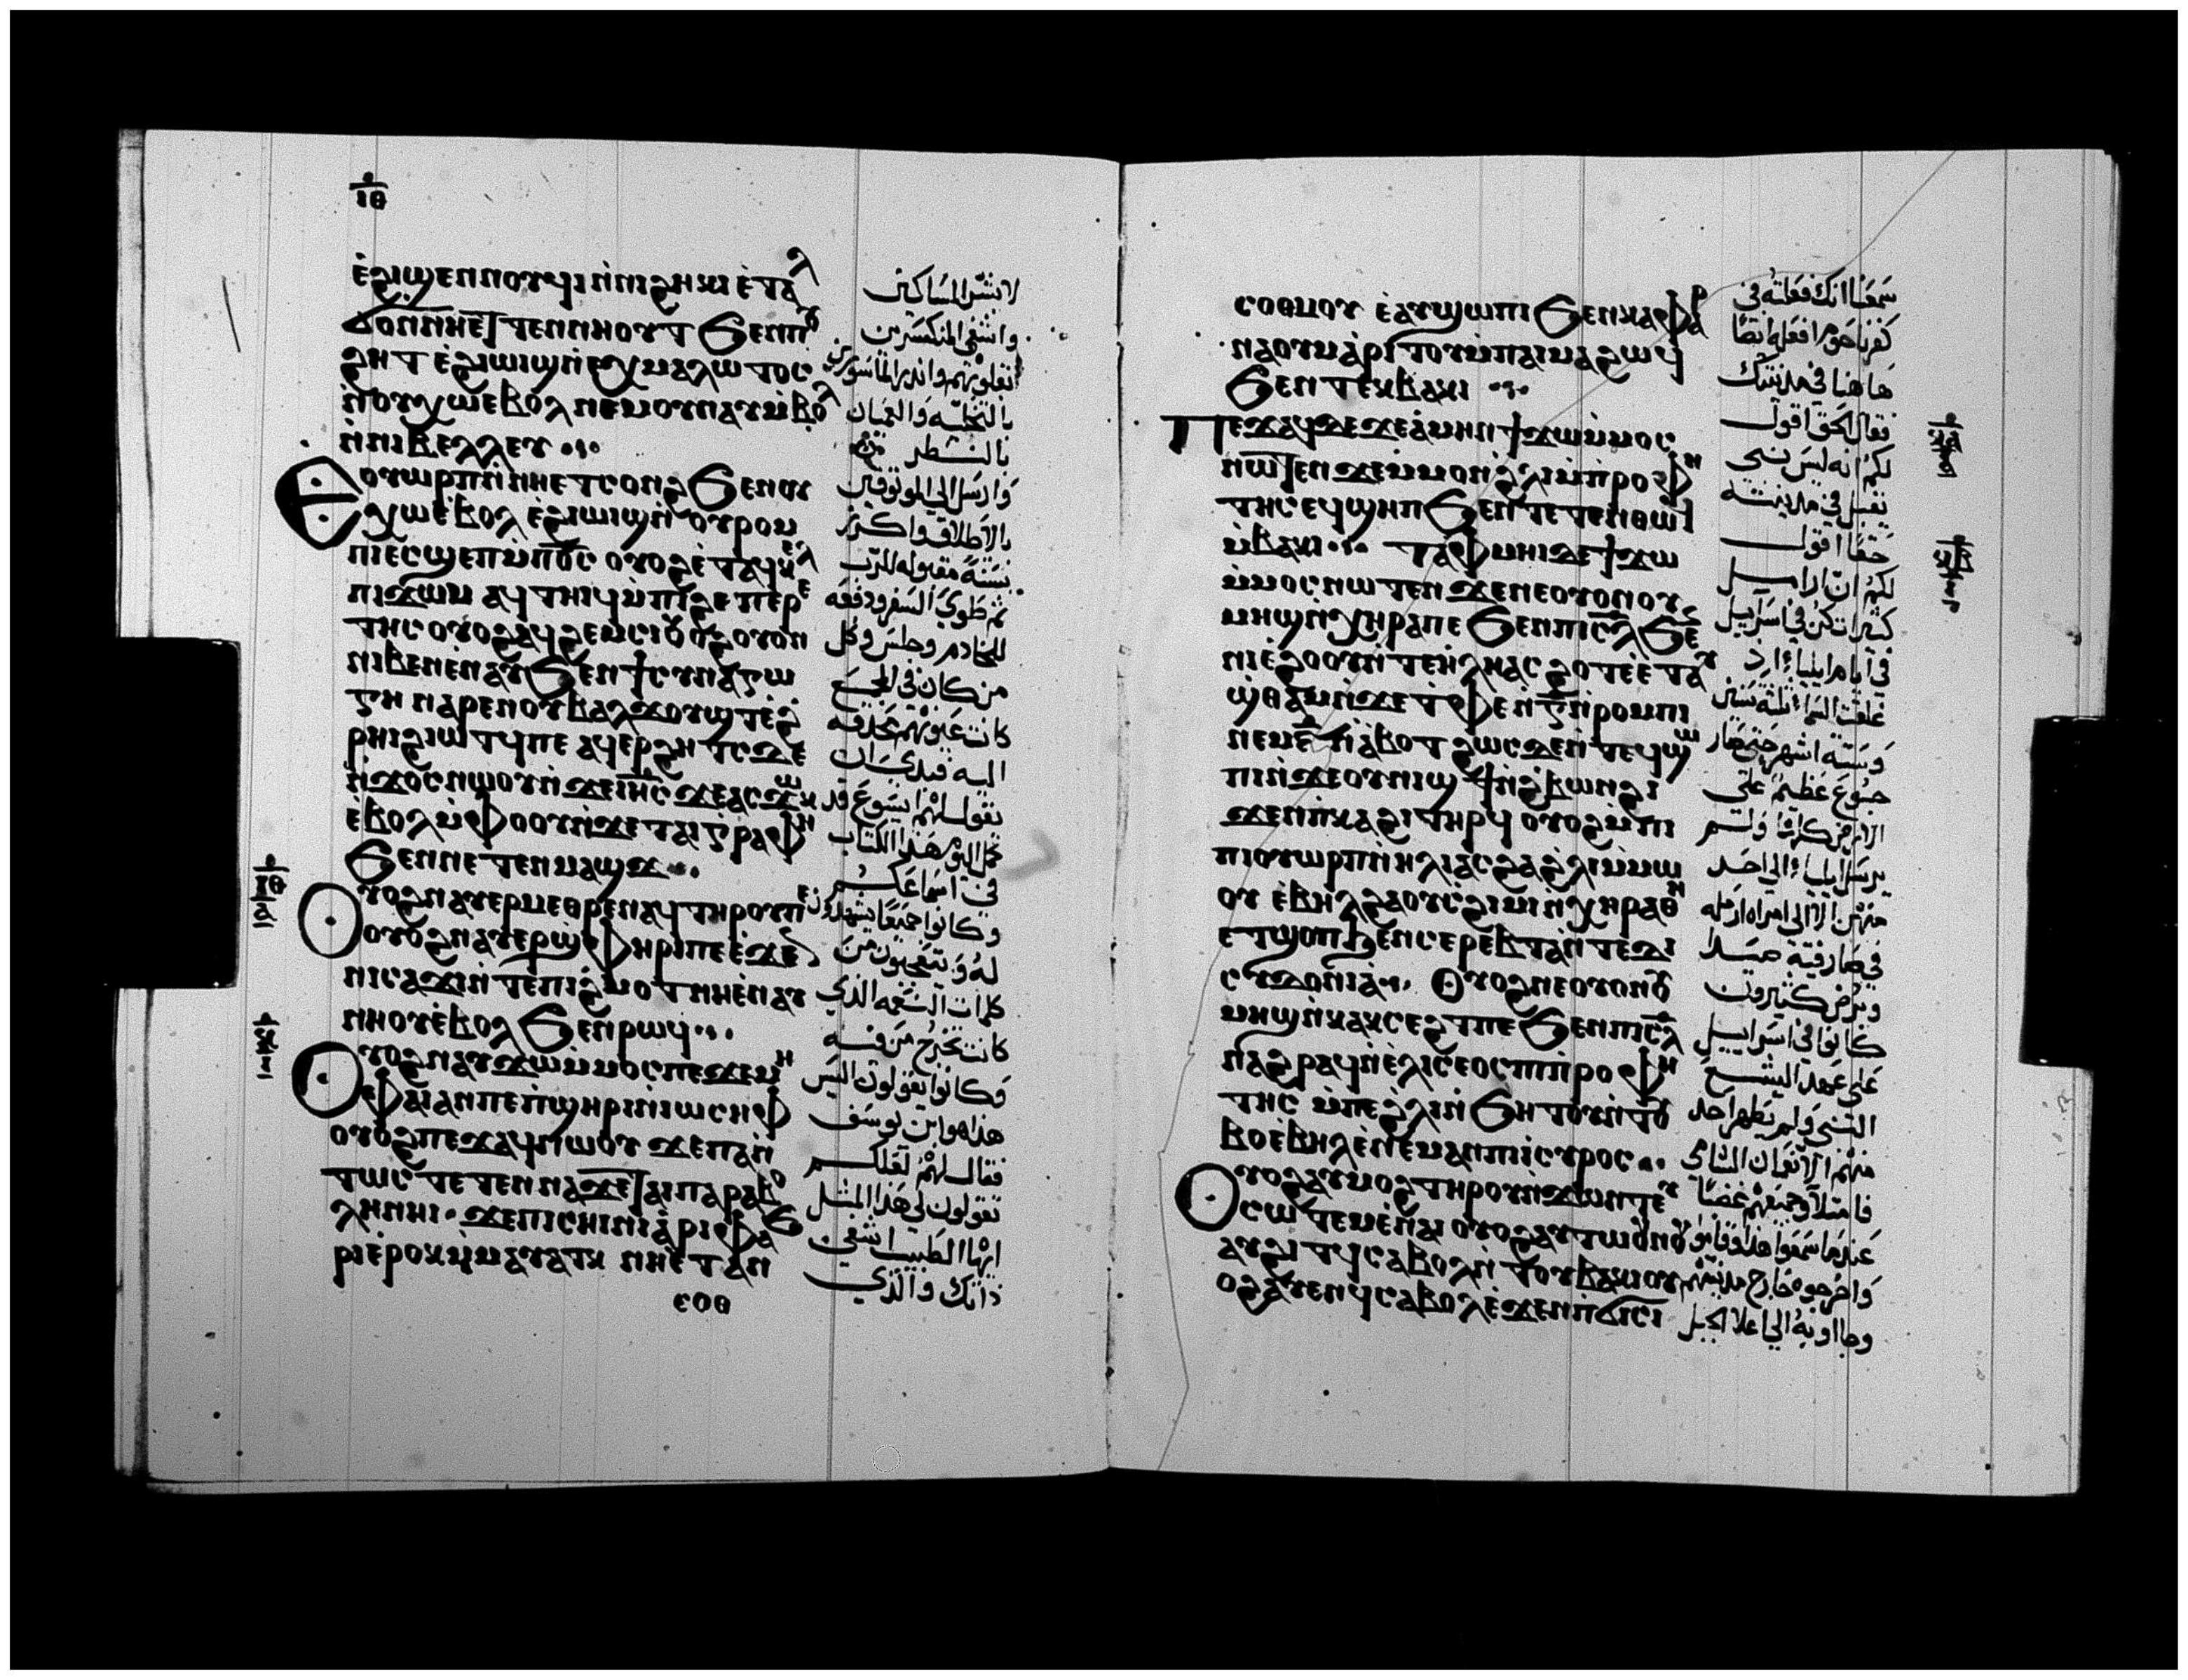 ⲓⲑ
ⲉ̀ϩⲓϣⲉⲛⲛⲟⲩϥⲓ ⲛ̀ⲛⲓϩⲏⲕⲓ ⲉ̀ⲧⲁⲗ
ϭⲟ ⲛⲛⲏⲉⲧⲧⲉⲛⲛⲏⲟⲩⲧ ϧⲉⲛⲡⲟⲩ
ϩⲏⲧ ⲉ̀ϩⲓⲱⲓϣ ⲛ̀ⲉⲭⲙⲁⲗⲱⲧⲟⲥ
ⲛ̀ⲟⲩⲭⲱ ⲉⲃⲟⲗ ⲛⲉⲙ ⲟⲩⲛⲁⲩ ⲙ̀ⲃⲟⲗ
ⲛ̀ⲛⲓⲃⲉⲗⲗⲉⲩ
ⲉⲟⲩⲱⲣⲡ ⲛ̀ⲛⲏⲉⲧⲥⲟⲛϩ ϧⲉⲛⲟⲩ
ⲭⲱ ⲉ̀ⲃⲟⲗ ⲉ̀ϩⲓⲱⲓϣ ⲛ̀ⲟⲩⲣⲟⲙ
ⲡⲓ ⲉⲥϣⲏⲡ ⲙ̀ⲡ̅ⲟ̅ⲥ̅ ⲟⲩⲟϩ ⲉ̀ⲧⲁϥⲕⲉⲗ
ⲡⲓϫⲱⲙ ⲁϥⲧⲏⲓϥ ⲙ̀ⲡⲓϩⲩⲡⲉⲣⲉ
ⲧⲏⲥ ⲟⲩⲟϩ ⲁϥϩⲉⲙⲥⲓ ⲟⲩⲟϩ ⲟⲩⲟⲛ
ⲛⲓⲃⲉⲛ ⲉ̀ⲛⲁⲩ ϧⲉⲛϯⲥⲩⲛⲁⲅⲱ
ⲅⲏ ⲛⲁⲣⲉ ⲛⲟⲩⲃⲁⲗ ϫⲟⲩϣⲧ ⲉ̀ϩ
ⲣⲏⲓ ϩⲓⲱⲧϥ ⲡⲉ ⲁϥⲉⲣϩⲏⲧⲥ ⲇⲉ
ⲛ̀ϫⲟⲥ ⲛⲱⲟⲩ ⲛ̀ϫⲉ ⲓⲏ̅ⲥ̅ ϫⲉ ⲁⲥϫⲱⲕ
ⲉ̀ⲃⲟⲗ ⲙ̀ⲫⲟⲟⲩ ⲛ̀ϫⲉ ⲧⲁⲓⲅⲣⲁⲫⲏ
ϧⲉⲛⲛⲉⲧⲉⲛⲙⲁϣϫ
ⲟⲩⲟϩ ⲛⲁⲩⲉⲣⲙⲉⲑⲣⲉ ⲛⲁϥ ⲧⲏⲣⲟⲩ ⲡⲉ
ⲟⲩⲟϩ ⲛⲁⲩⲉⲣϣ̀ⲫⲏⲣⲓ ⲡⲉ ⲉ̀ϫⲉⲛ
ⲛⲓⲥⲁϫⲓ ⲛ̀ⲧⲉ ⲡⲓϩ̀ⲙⲟⲧ ⲛⲏ ⲉ̀ⲛⲁⲩ
ⲛⲏⲟⲩ ⲉ̀ⲃⲟⲗ ϧⲉⲛⲣⲱϥ
ⲟⲩⲟϩ ⲛⲁⲩϫⲱ ⲙ̀ⲙⲟⲥ ⲡⲉ ϫⲉ ⲙⲏ
ⲫⲁⲓ ⲁⲛ ⲡⲉ ⲡ̀ϣⲏⲣⲓ ⲛ̀ⲓⲱⲥⲏⲫ
ⲟⲩⲟϩ ⲡⲉϫⲁϥ ⲛⲱⲟⲩ ϫⲉ ⲡⲁⲛ
ⲧⲱⲥ ⲧⲉⲧⲉⲛⲛⲁϫⲉ ⲧⲁⲓⲡⲁⲣⲁⲃⲟ
ⲗⲏ ⲛⲏⲓ ϫⲉ ⲡⲓⲥⲏⲓⲛⲓ ⲁ̀ⲣⲓⲫⲁϧ
ⲣⲓ ⲉ̀ⲣⲟⲕ ⲙ̀ⲙⲁⲩⲁⲧⲕ ⲛⲏ ⲉ̀ⲧⲁⲛ
ⲥⲟⲑ
لابشر المساكين
واشفي المنكسرين
بقلوبهم وانذر الماسورين
بالتخليه والعميان
بالنظر
وارسل الي الموثوقين
بالاطلاق واكرز
بسنة مقبوله للرب
ثم طوي السفر ودفعه
للخادم وجلس وكل
من كان في المجمع
كانت عيونهم محدقه
اليه فبدي بان
يقول لهم ايسوع قد
كمل اليوم هذا الكتاب
في اسماعكم
وكانوا جميعا يشهدون
له ويتعجبون من
كلمات النعمه الذي
كانت تخرج من فيه
وكانوا يقولون اليس
هذا هو ابن يوسف
فقال لهم لعلكم
تقولون لي هذا المثل
ايها الطبيب اشفي
ذاتك والذي
ⲥⲟⲑⲙⲟⲩ ⲉ̀ⲁⲩϣⲱⲡⲓ ϧⲉⲛⲕⲁⲫⲁⲣ
ⲛⲁⲟⲩⲙ ⲁ̀ⲣⲓⲧⲟⲩ ⲙ̀ⲡⲁⲓⲙⲁ ϩⲱϥ
ϧⲉⲛⲧⲉⲕⲃⲁⲕⲓ
ⲡⲉϫⲁϥ ⲇⲉ ϫⲉ ⲁ̀ⲙⲏⲛ ϯϫⲱ ⲙ̀ⲙⲟⲥ
ⲛⲱⲧⲉⲛ ϫⲉ ⲙ̀ⲙⲟⲛ ϩ̀ⲗⲓ ⲙ̀ⲡ̀ⲣⲟⲫⲏ
ⲧⲏⲥ ⲉϥϣⲏⲡ ϧⲉⲛⲧⲉⲧⲉⲛⲑⲱ
ⲙ̀ⲃⲁⲕⲓ ⲧⲁⲫⲙⲏⲓ ⲇⲉ ϯϫⲱ
ⲙ̀ⲙⲟⲥ ⲛⲱⲧⲉⲛ ϫⲉ ⲛⲉ ⲟⲩⲟⲛ ⲟⲩ
ⲙⲏϣ ⲛ̀ⲭⲏⲣⲁ ⲡⲉ ϧⲉⲛⲡⲓⲥ̅ⲗ̅ ϧⲉⲛ
ⲛⲓⲉ̀ϩⲟⲟⲩ ⲛ̀ⲧⲉ ⲏ̀ⲗⲓⲁⲥ ϩⲟⲧⲉ ⲉ̀ⲧⲁⲩ
ϣ̀ⲑⲁⲙ ⲛ̀ϫⲉ ⲧ̀ⲫⲉ ⲛ̀ⲅ̅ ⲛ̀ⲣⲟⲙⲡⲓ
ⲛⲉⲙ ⲋ̅ ⲛ̀ⲁⲃⲟⲧ ϩⲱⲥⲇⲉ ⲛ̀ⲧⲉϥϣⲱ
ⲡⲓ ⲛ̀ϫⲉ ⲟⲩⲛⲓϣϯ ⲛ̀ϩ̀ⲃⲱⲛ ϩⲓ
ϫⲉⲛ ⲡ̀ⲕⲁϩⲓ ⲧⲏⲣϥ ⲟⲩⲟϩ ⲙ̀ⲡ
ⲟⲩⲟⲩⲱⲣⲡ ⲛ̀ⲏⲗⲓⲁⲥ ϩⲁ ϩ̀ⲗⲓ ⲙ̀ⲙⲱ
ⲟⲩ ⲉ̀ⲃⲏⲗ ϩⲁ ⲟⲩⲥϩⲓⲙⲓ ⲛ̀ⲭⲏⲣⲁ ⲑⲏ
ⲉⲧϣⲟⲡ ϧⲉⲛⲥⲉⲣⲉⲡⲧⲁ ⲛ̀ⲧⲉ ϯ
ⲥⲩⲇⲟⲛⲓⲁ ⲟⲩⲟϩ ⲛⲉ ⲟⲩⲟⲛ ⲟⲩ
ⲙⲏϣ ⲛ̀ⲕⲁⲕⲥⲉϩⲧ ⲡⲉ ϧⲉⲛⲡⲓⲥ̅ⲗ̅
ⲛⲁϩⲣⲁϥ ⲛ̀ⲉ̀ⲗⲓⲥⲉⲟⲥ ⲡⲓⲡ̀ⲣⲟⲫⲏ
ⲧⲏⲥ ⲙ̀ⲡⲉ ϩ̀ⲗⲓ ⲛ̀ϧⲏⲧⲟⲩ ⲛ̀ⲧⲟⲩ
ⲃⲟ ⲉ̀ⲃⲏⲗ ⲉ̀ⲛⲉⲙⲁⲛ ⲡⲓⲥⲩⲣⲟⲥ
ⲟⲩⲟϩ ⲁⲩⲙⲟϩ ⲧⲏⲣⲟⲩ ⲛ̀ϫⲱⲛⲧ ⲉⲩ
ⲥⲱⲧⲉⲙ ⲉ̀ⲛⲁⲓ ⲟⲩⲟϩ ⲁⲩⲧⲱⲟⲩⲛⲟⲩ
ⲁⲩϩⲓⲧϥ ⲥⲁⲃⲟⲗ ⲛ̀ⲧⲟⲩⲃⲁⲕⲓ ⲟⲩ
ⲟϩ ⲁⲩⲉⲛϥ ⲥⲁⲃⲟⲗ ⲉ̀ϫⲉⲛ ⲡ̀ϭⲓⲥⲓ
سمعنا انك فعلته في
كفرناحوم افعله ايضا
هاهنا في مدينتك
فقال الحق اقول
لكم انه ليس نبي
يقبل في مدينته
حقا اقول
لكم ان اراميل
كثيرات كن في اسراييل
في ايام ايلياء اذ
غلقت السماء ثلثة سنين
وسته اشهر حتي صار
جوع عظيم علي
الارض كلها ولم
يرسل ايلياء الي احد
منهن الا الي امراه ارمله
في صارفيه صيدا
وبرص كثيرون
كانوا في اسراييل
علي عهد اليشع
النبي ولم يطهر احد
منهم الا نعمان الشامي
فامتلاو جميعهم غضبا
عندما سمعوا هذا وقاموا
واخرجوه خارج مدينتهم
وجاوا به الي اعلا الجبل